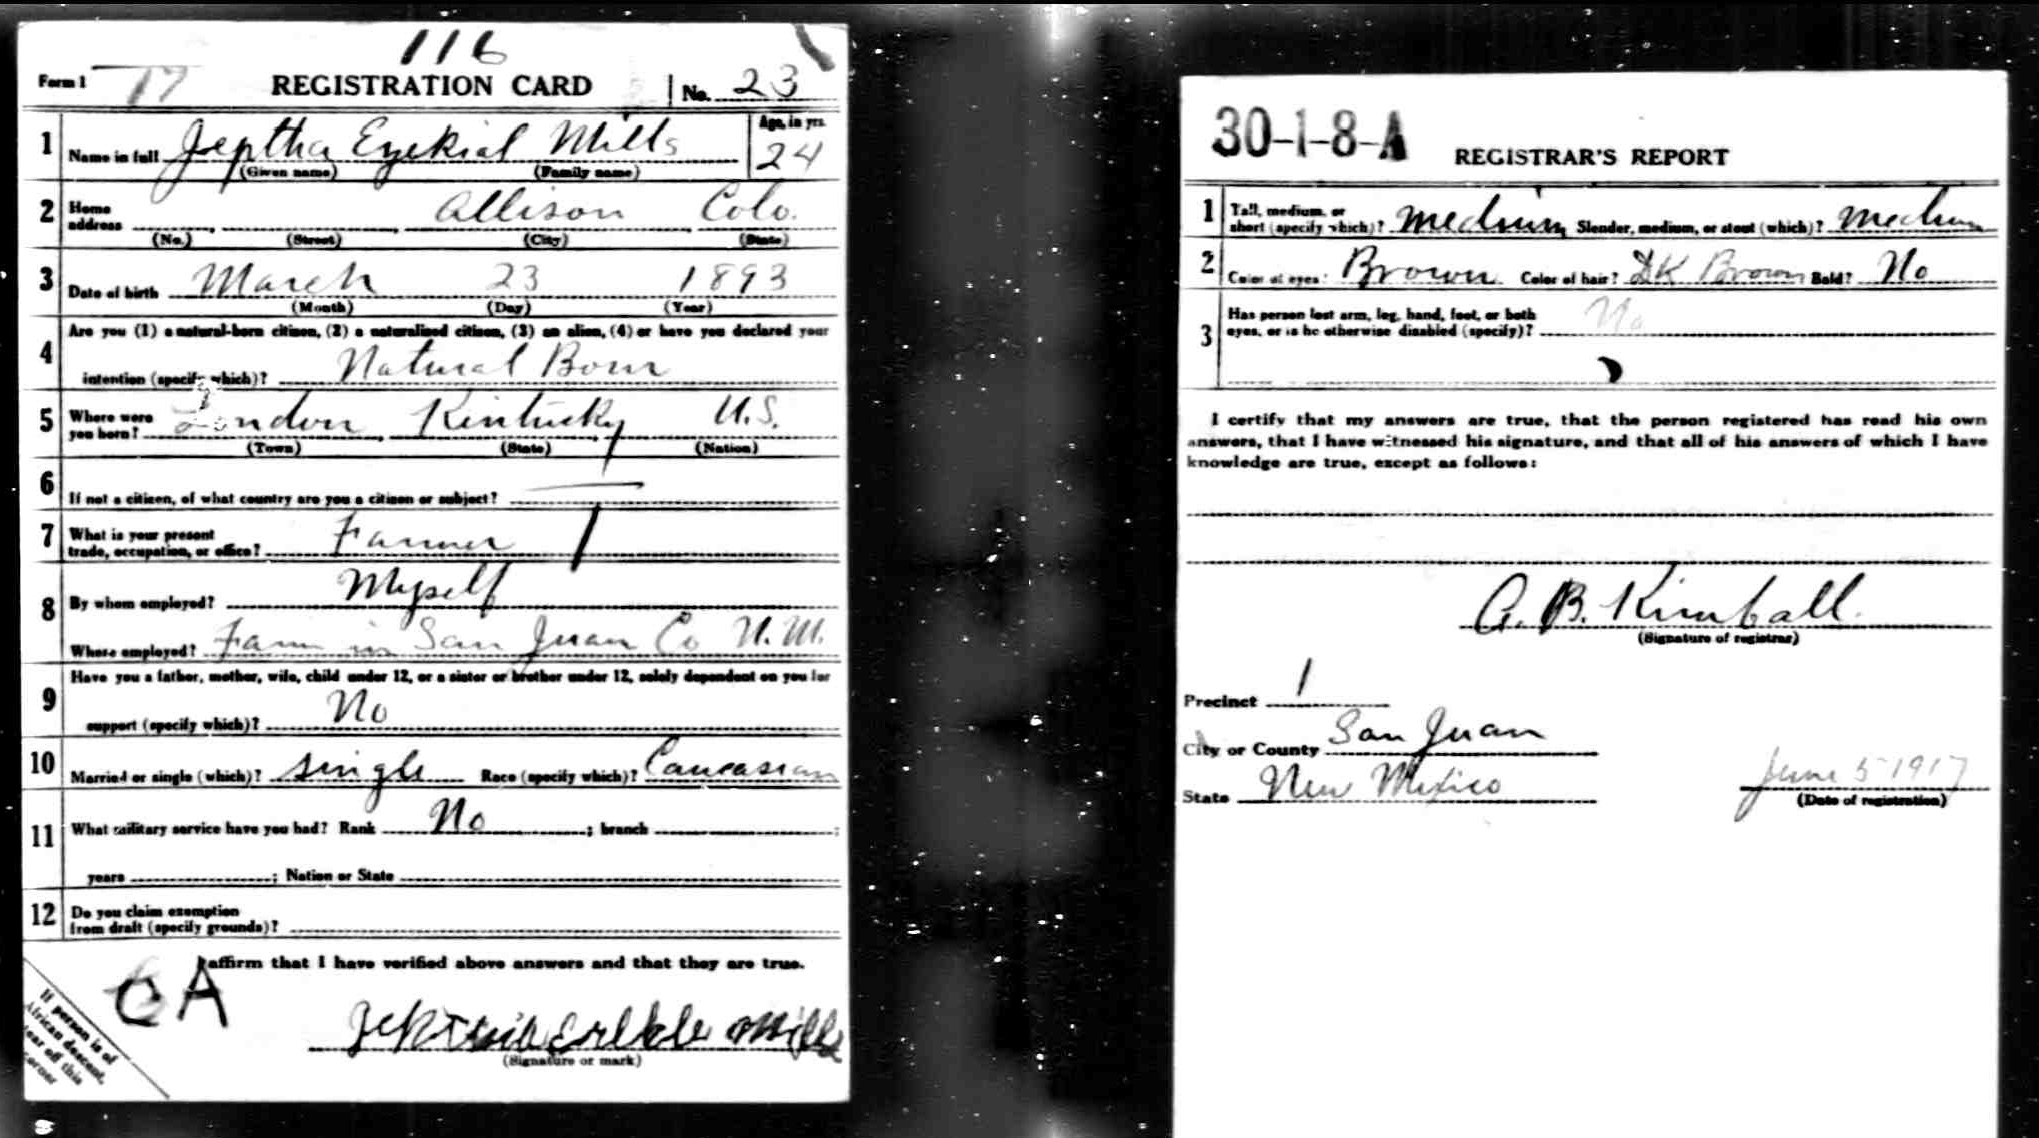 116
Form 1 17 REGISTRATION CARD No. 23
1 Name in full Jeptha Ezekial Mills Age, in yrs. 24
(Given name) (Family name)
2 Home address Allison Colo.
(No.) (Street) (City) (State)
3 Date of birth March 23 1893
(Month) (Day) (Year)
4 Are you (1) a natural-born citizen, (2) a naturalized citizen, (3) an alien, (4) or have you declared your
intention (specify which)? Natural Born
5 Where were you born? London Kintucky U.S.
(Town) (State) (Nation)
6 If not a citizen, of what country are you a citizen or subject?
7 What is your present trade, occupation, or office? Farmer
8 By whom employed? Myself
Where employed? Farm in San Juan Co N.M.
9 Have you a father, mother, wife, child under 12, or a sister or brother under 12, solely dependent on you for
support (specify which)? No
10 Married or single (which)? single Race (specify which)? Caucasian
11 What military service have you had? Rank No ; branch ;
years ; Nation or State
12 Do you claim exemption from draft (specify grounds)?
I affirm that I have verified above answers and that they are true.
CA
Mills
(Signature or mark)
If person is of
African descent,
tear off this
corner
30-1-8-A
REGISTRAR'S REPORT
1 Tall, medium, or short (specify which)? medium Slender, medium, or stout (which)? medium
2 Color of eyes? Brown Color of hair? DK Brown Bald? No
3 Has person lost arm, leg, hand, foot, or both
eyes, or is he otherwise disabled (specify)? No
I certify that my answers are true, that the person registered has read his own
answers, that I have witnessed his signature, and that all of his answers of which I have
knowledge are true, except as follows:
A. B. Kimball
(Signature of registrar)
Precinct 1
City or County San Juan
State New Mexico June 5 1917
(Date of registration)